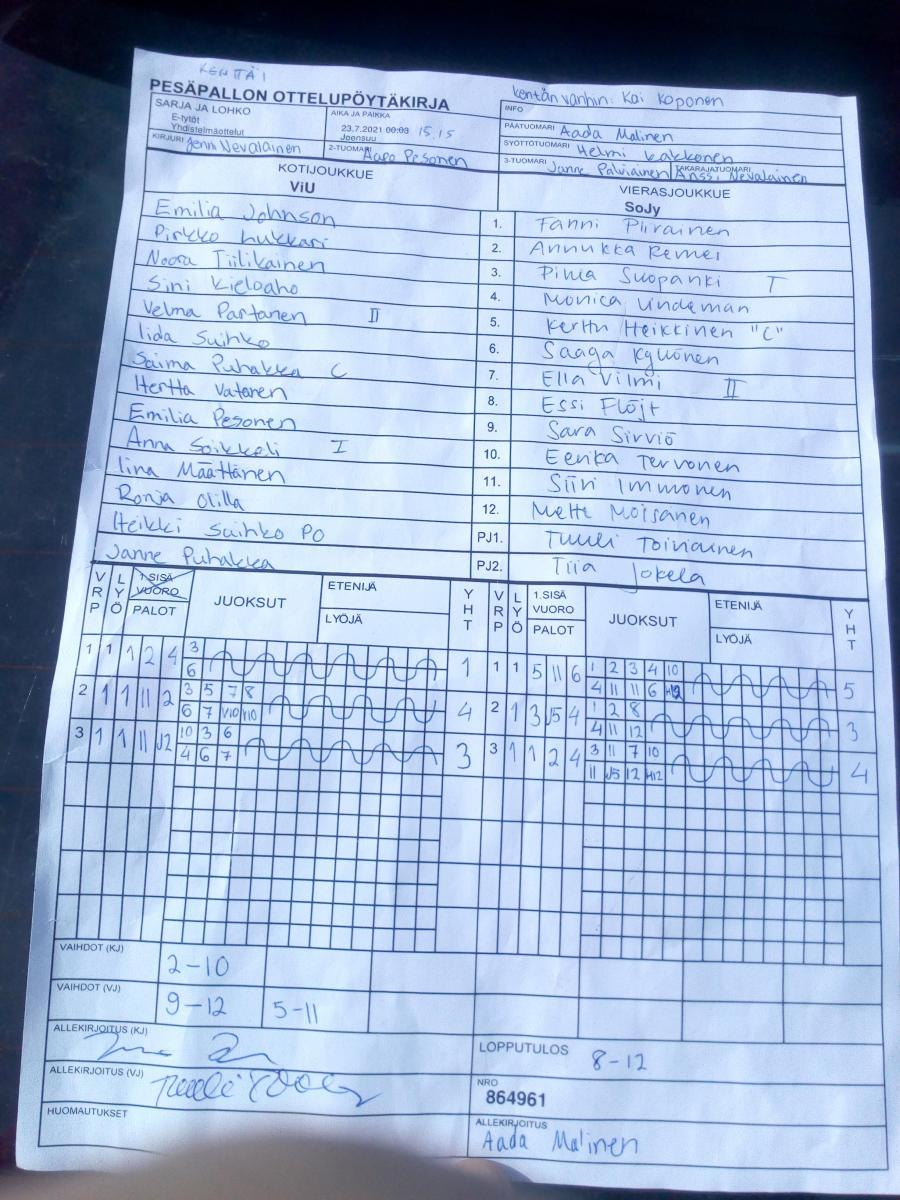 KENTTÄ 1
PESÄPALLON OTTELUPÖYTÄKIRJA
kentän vanhin: Kai Koponen
SARJA JA LOHKO
E-tytöt
Yhdistelmäottelut
AIKA JA PAIKKA
23.7.2021 00:00 15.15
Joensuu
INFO
PÄÄTUOMARI Aada Malinen
SYÖTTÖTUOMARI Helmi Kakkonen
KIRJURI Jenni Nevalainen
2-TUOMARI Aapo Pesonen
3-TUOMARI Janne Palviainen TAKARAJATUOMARI Anssi Nevalainen
KOTIJOUKKUE
ViU
VIERASJOUKKUE
SoJy
Emilia Johnson 1. Fanni Piirainen
Pirkko Lukkari 2. Annukka Remes
Noora Tiilikainen 3. Pima Suopanki T
Sini Kieloaho 4. Monica Lindeman
Velma Partanen II 5. Kerttu Heikkinen "C"
Iida Suihko 6. Saaga Kyllönen
Saima Puhakka C 7. Ella Vilmi II
Hertta Vatanen 8. Essi Flöjt
Emilia Pesonen 9. Sara Sirviö
Anna Soikkeli I 10. Eerika Tervonen
Iina Määttänen 11. Siiri Immonen
Ronja Olilla 12. Metti Moisanen
Heikki Suihko PO PJ1. Tuuli Toiviainen
Janne Puhakka PJ2. Tiia Jokela
VRP LYÖ 1.SISÄ VUORO PALOT JUOKSUT ETENIJÄ LYÖJÄ YHT VRP LYÖ 1.SISÄ VUORO PALOT JUOKSUT ETENIJÄ LYÖJÄ YHT
1 1 1 2 4 3 1 1 1 5 11 6 1 2 3 4 10 5
6 4 11 11 6 H12
2 1 1 11 2 3 5 7 8 4 2 1 3 J5 4 1 2 8 3
6 7 V10 V10 4 11 12
3 1 1 11 J2 10 3 6 3 3 1 1 2 4 3 11 7 10 4
4 6 7 11 J5 12 H12
VAIHDOT (KJ) 2-10
VAIHDOT (VJ) 9-12 5-11
ALLEKIRJOITUS (KJ)
LOPPUTULOS 8-12
ALLEKIRJOITUS (VJ)
NRO
864961
HUOMAUTUKSET
ALLEKIRJOITUS
Aada Malinen